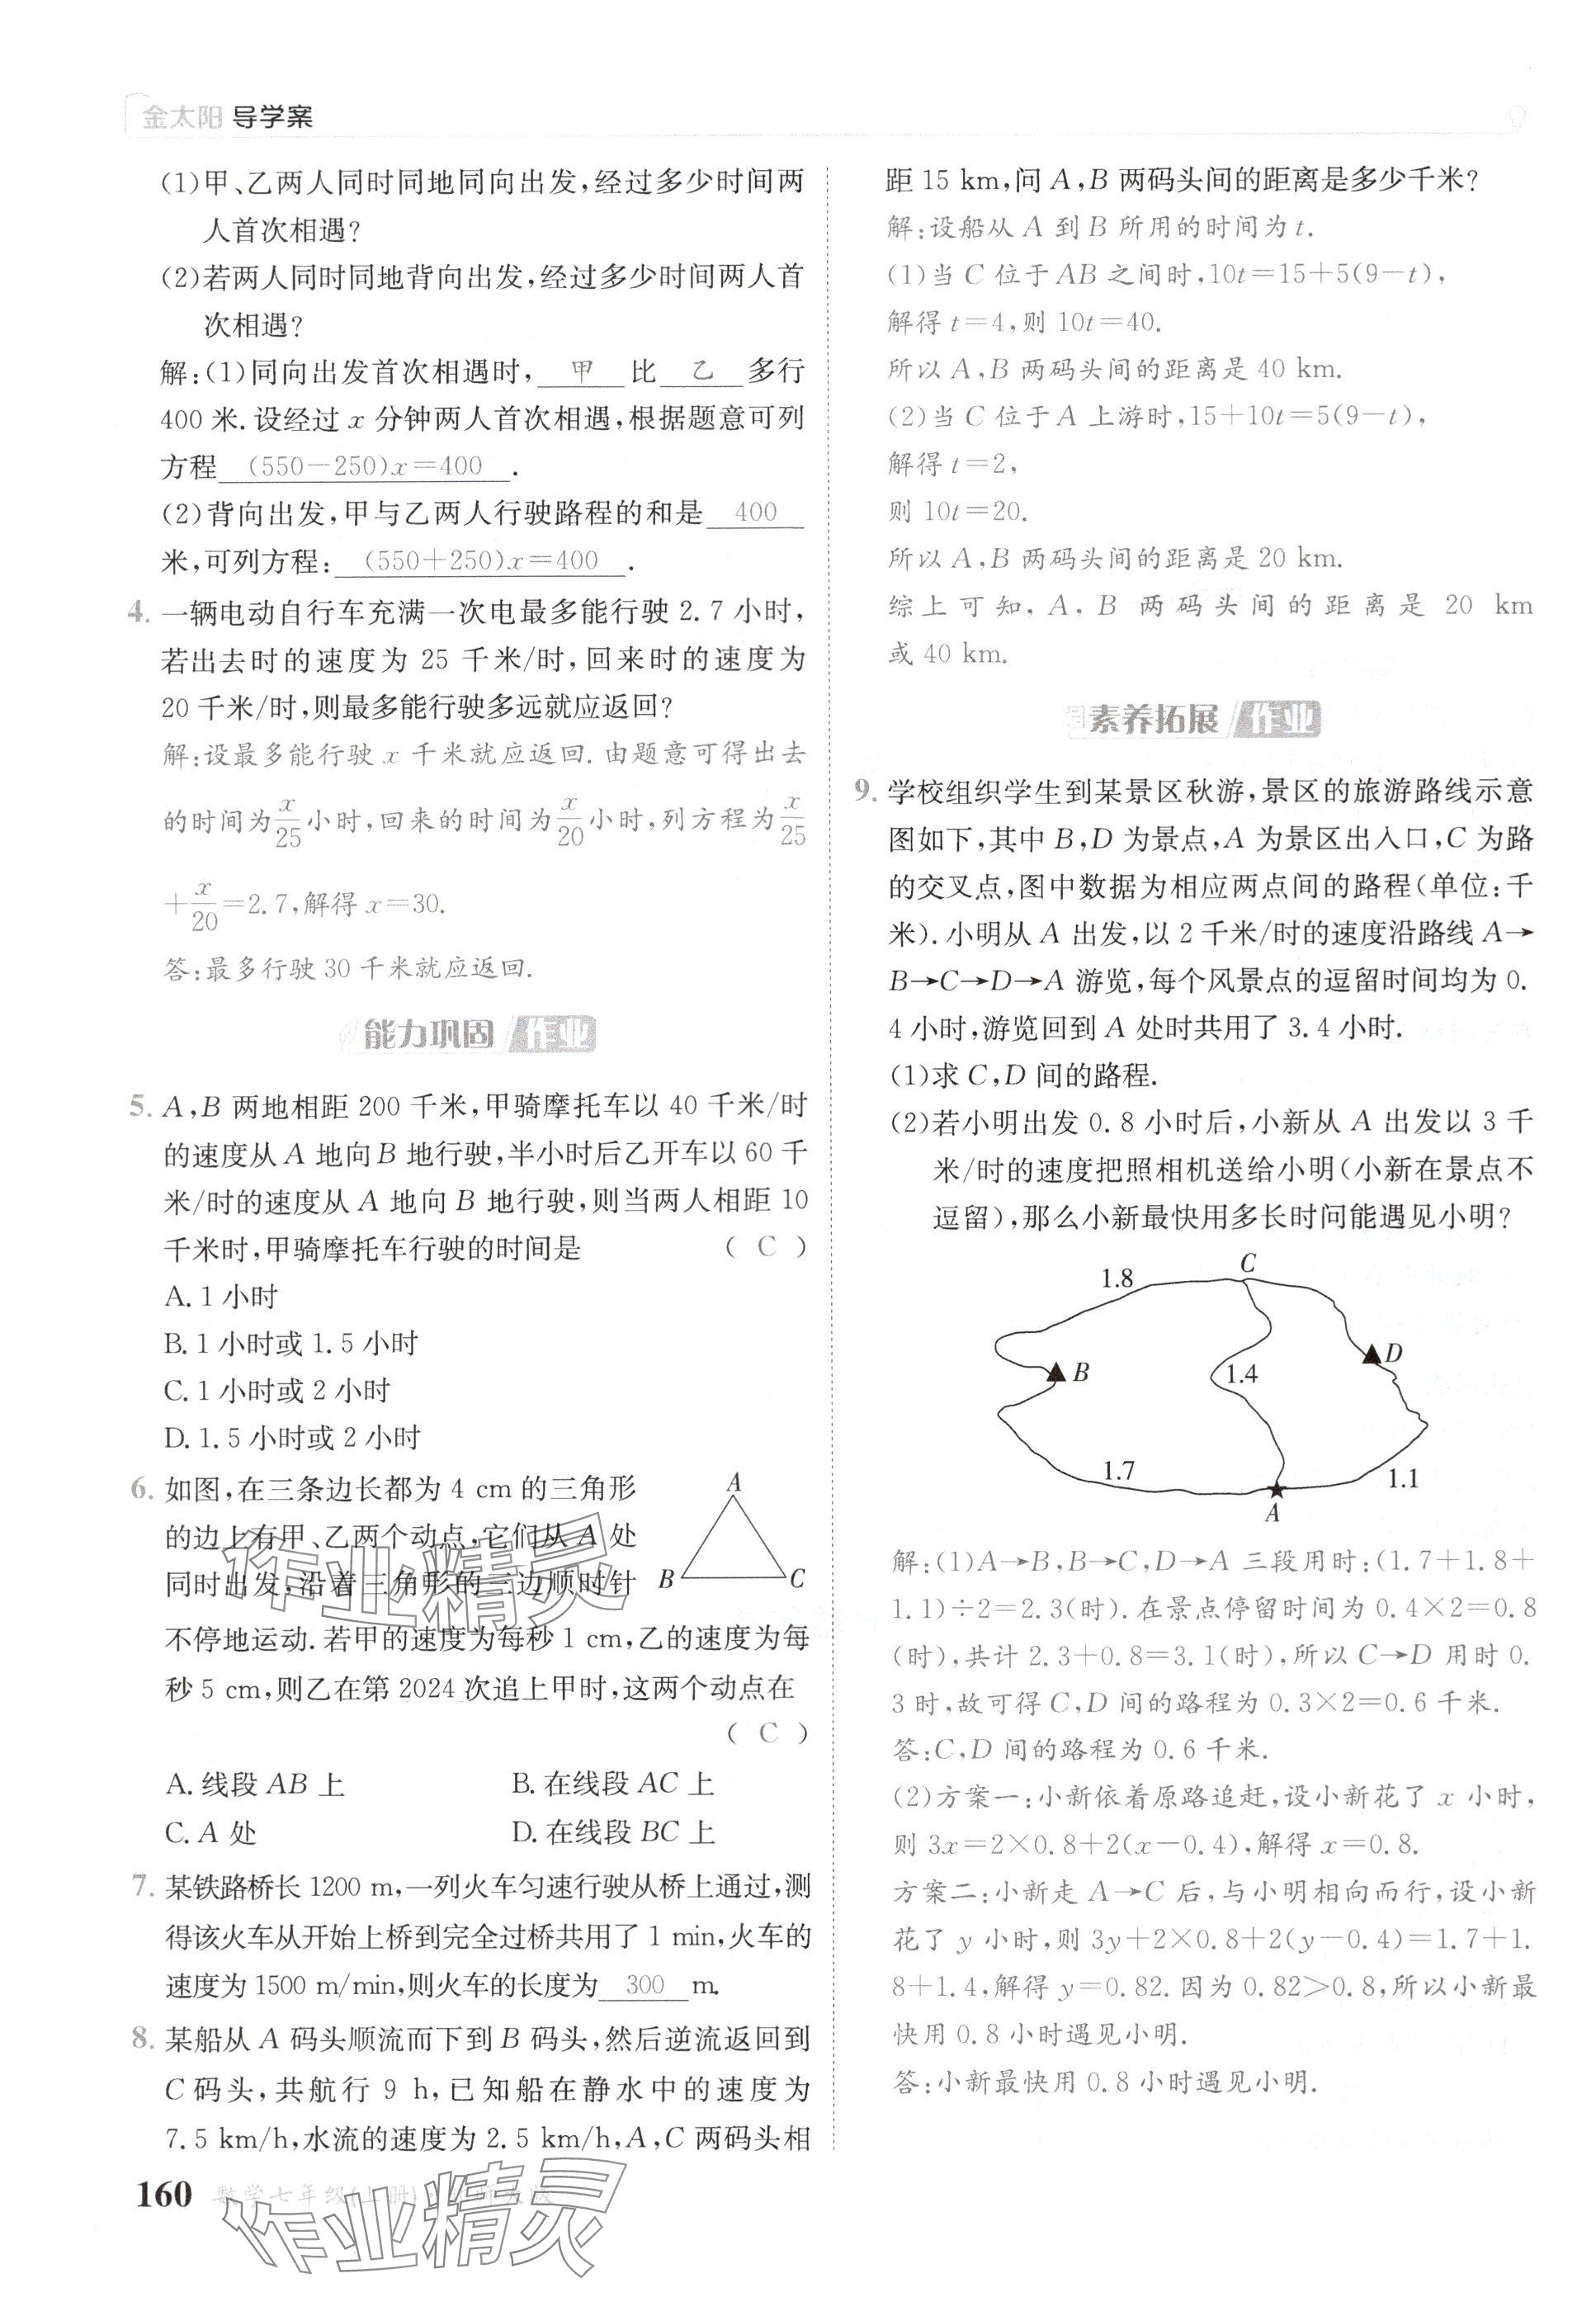 金太阳 导学案
(1)甲、乙两人同时同地同向出发,经过多少时间两
人首次相遇?
(2)若两人同时同地背向出发,经过多少时间两人首
次相遇?
解:(1)同向出发首次相遇时, 甲 比 乙 多行
400米.设经过 x 分钟两人首次相遇,根据题意可列
方程 (550-250)x=400 .
(2)背向出发,甲与乙两人行驶路程的和是 400
米,可列方程: (550+250)x=400 .
4. 一辆电动自行车充满一次电最多能行驶 2.7 小时,
若出去时的速度为 25 千米/时,回来时的速度为
20千米/时,则最多能行驶多远就应返回?
解:设最多能行驶 x 千米就应返回.由题意可得出去
的时间为x/25小时,回来的时间为x/20小时,列方程为x/25
+x/20=2.7,解得 x=30.
答:最多行驶30 千米就应返回.
能力巩固 作业
5. A,B 两地相距 200 千米,甲骑摩托车以 40 千米/时
的速度从A 地向 B 地行驶,半小时后乙开车以 60 千
米/时的速度从 A 地向 B 地行驶,则当两人相距 10
千米时,甲骑摩托车行驶的时间是 ( C )
A. 1 小时
B. 1 小时或 1.5 小时
C. 1 小时或 2 小时
D. 1.5 小时或 2 小时
6. 如图,在三条边长都为 4 cm 的三角形
的边上有甲、乙两个动点,它们从 A 处
同时出发,沿着三角形的三边顺时针
不停地运动.若甲的速度为每秒 1 cm,乙的速度为每
秒 5 cm,则乙在第 2024 次追上甲时,这两个动点在
( C )
A
B
C
A. 线段 AB 上 B. 在线段 AC 上
C. A 处 D. 在线段 BC 上
7. 某铁路桥长 1200 m,一列火车匀速行驶从桥上通过,测
得该火车从开始上桥到完全过桥共用了 1 min,火车的
速度为 1500 m/min,则火车的长度为 300 m.
8. 某船从 A 码头顺流而下到 B 码头,然后逆流返回到
C 码头,共航行 9 h,已知船在静水中的速度为
7.5 km/h,水流的速度为 2.5 km/h,A,C 两码头相
160 数学七年级(上册)
作业精灵
作业精灵
距 15 km,问 A,B 两码头间的距离是多少千米?
解:设船从 A 到 B 所用的时间为 t.
(1)当 C 位于 AB 之间时,10t=15+5(9-t),
解得 t=4,则 10t=40.
所以 A,B 两码头间的距离是 40 km.
(2)当 C 位于 A 上游时,15+10t=5(9-t),
解得 t=2,
则 10t=20.
所以 A,B 两码头间的距离是 20 km.
综上可知,A,B 两码头间的距离是 20 km
或 40 km.
素养拓展 作业
9. 学校组织学生到某景区秋游,景区的旅游路线示意
图如下,其中 B,D 为景点,A 为景区出入口,C 为路
的交叉点,图中数据为相应两点间的路程(单位:千
米).小明从 A 出发,以 2 千米/时的速度沿路线 A→
B→C→D→A 游览,每个风景点的逗留时间均为 0.
4 小时,游览回到 A 处时共用了 3.4 小时.
(1)求 C,D 间的路程.
(2)若小明出发 0.8 小时后,小新从 A 出发以 3 千
米/时的速度把照相机送给小明(小新在景点不
逗留),那么小新最快用多长时问能遇见小明?
1.8
C
B
1.4
D
1.7
A
1.1
解:(1)A→B,B→C,D→A 三段用时:(1.7+1.8+
1.1)÷2=2.3(时).在景点停留时间为 0.4×2=0.8
(时),共计 2.3+0.8=3.1(时),所以 C→D 用时 0.
3 时,故可得 C,D 间的路程为 0.3×2=0.6 千米.
答:C,D 间的路程为 0.6 千米.
(2)方案一:小新依着原路追赶,设小新花了 x 小时,
则 3x=2×0.8+2(x-0.4),解得 x=0.8.
方案二:小新走 A→C 后,与小明相向而行,设小新
花了 y 小时,则 3y+2×0.8+2(y-0.4)=1.7+1.
8+1.4,解得 y=0.82.因为 0.82>0.8,所以小新最
快用 0.8 小时遇见小明.
答:小新最快用 0.8 小时遇见小明.